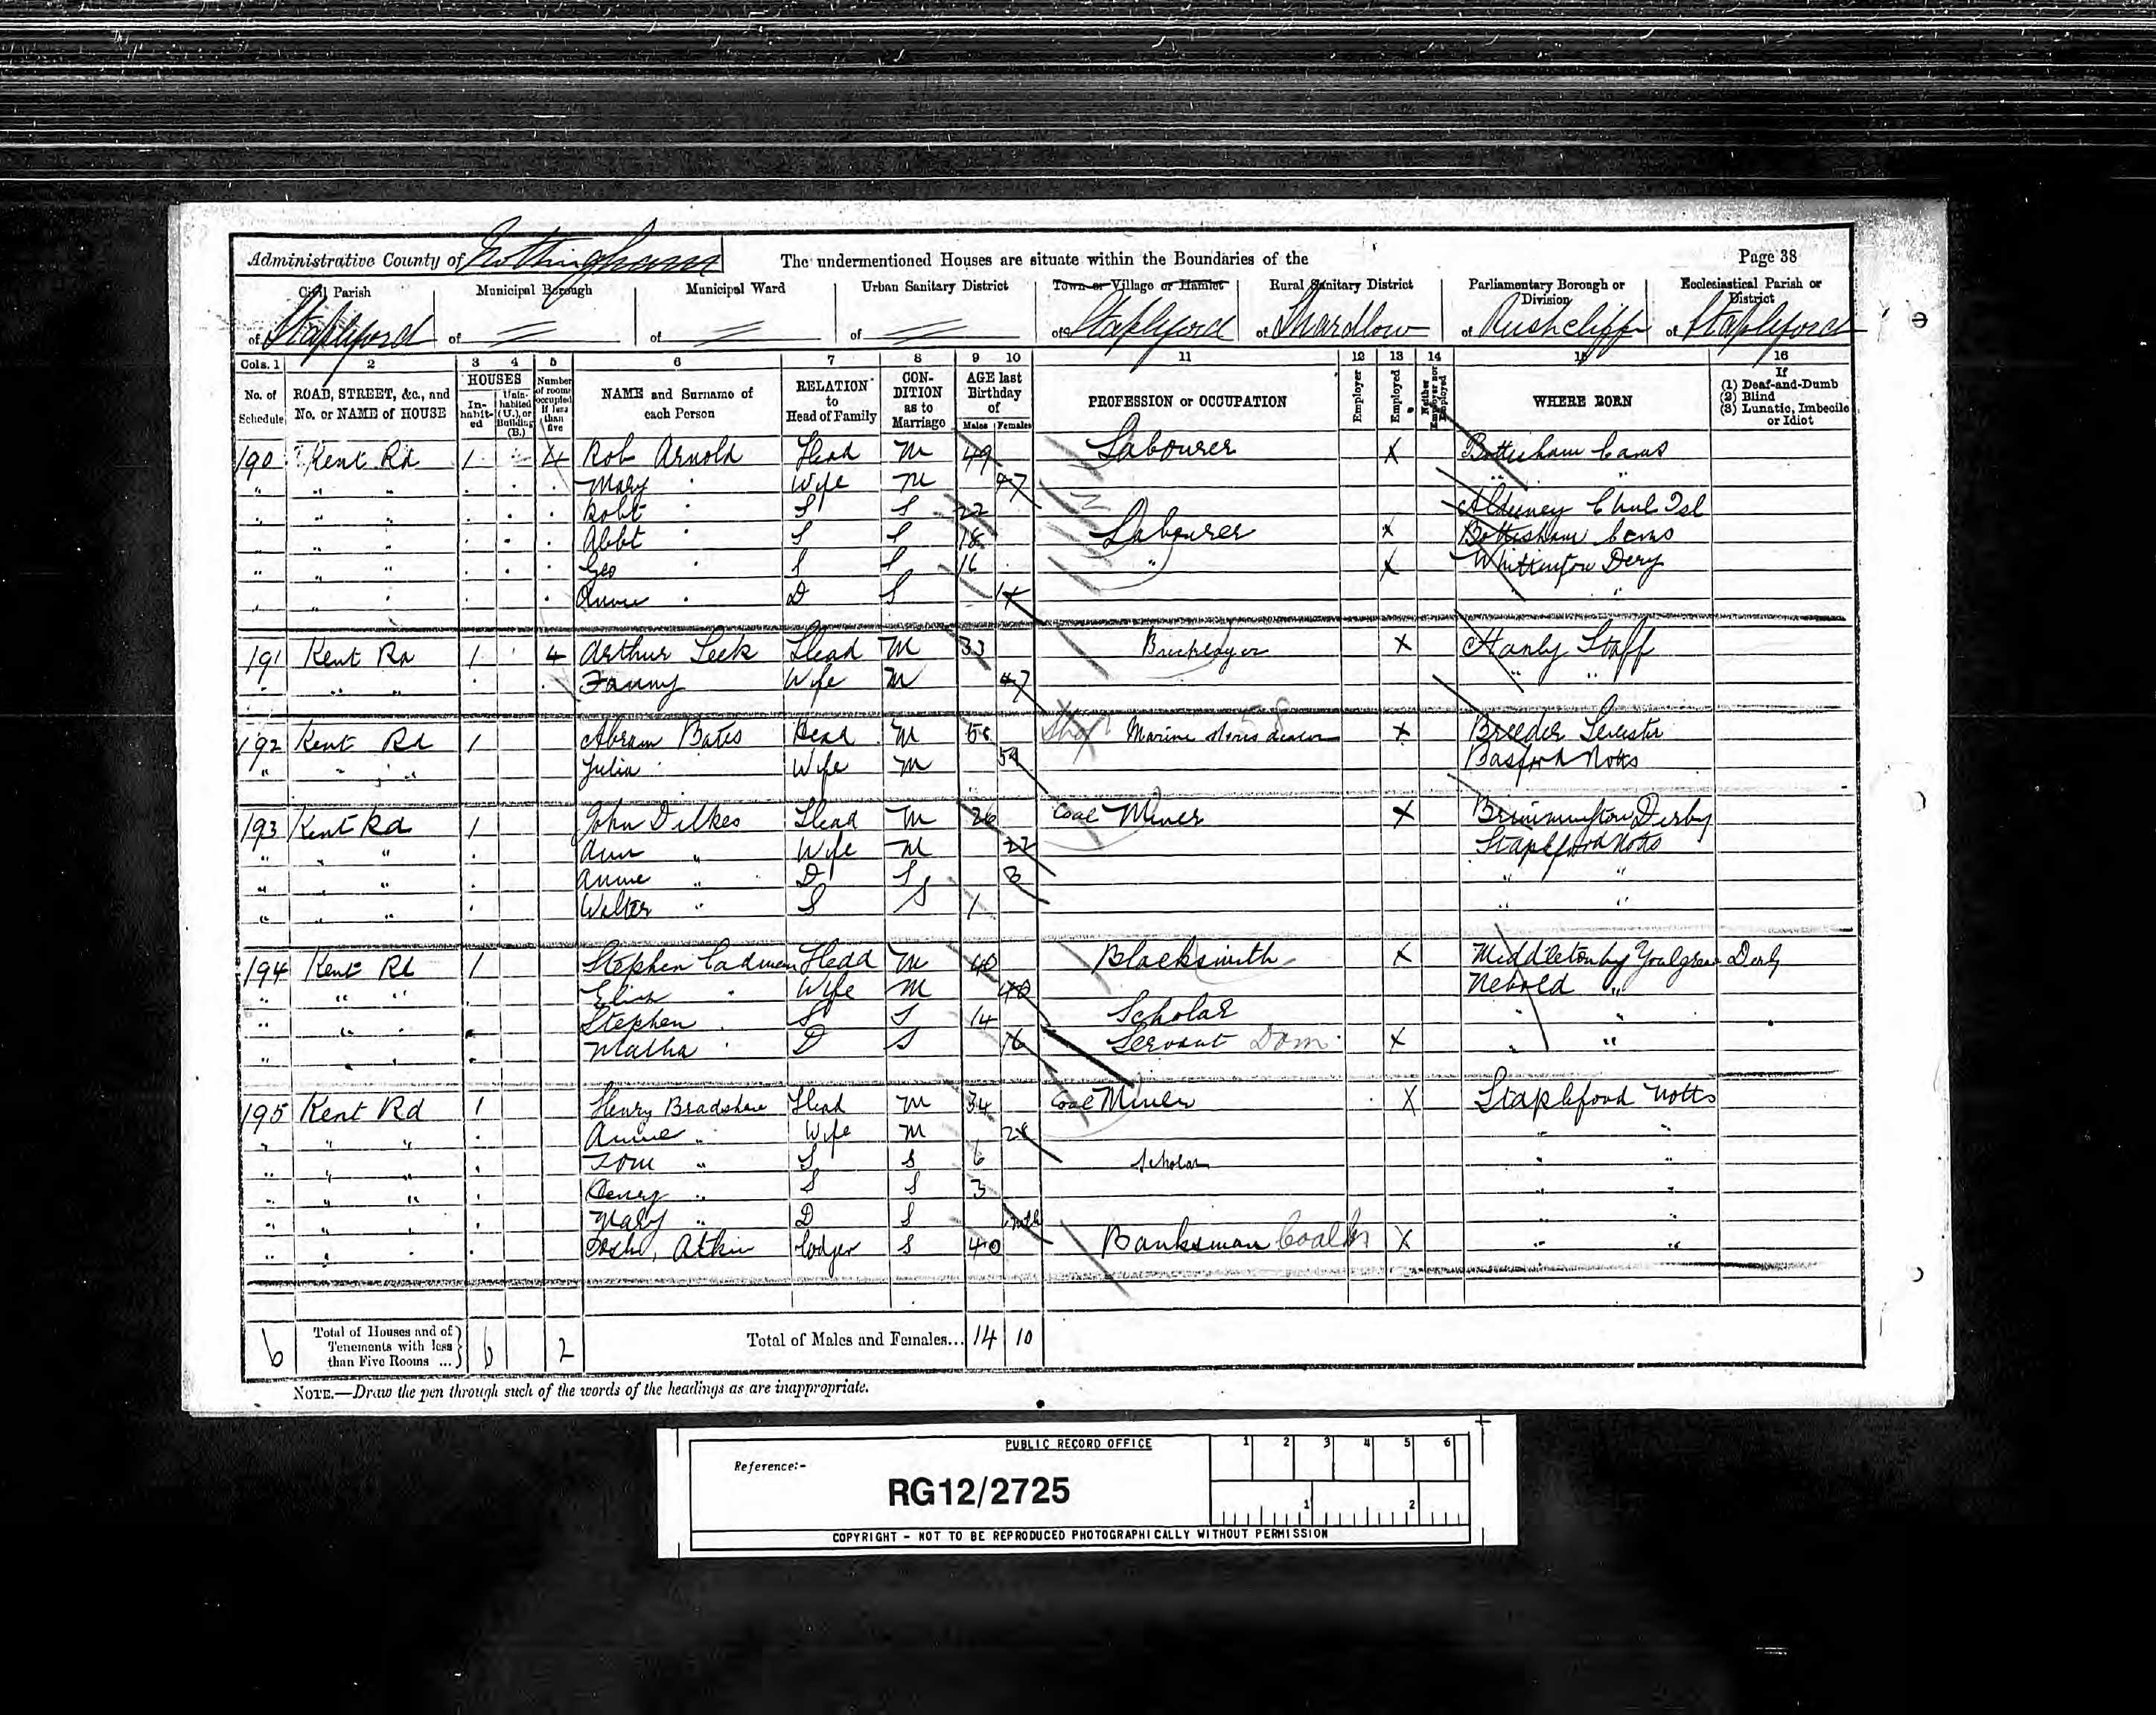 Administrative County of Nottingham The undermentioned Houses are situate within the Boundaries of the Page 38
Civil Parish Municipal Borough Municipal Ward Urban Sanitary District Town or Village or Hamlet Rural Sanitary District Parliamentary Borough or Division Ecclesiastical Parish or District
of Stapleford of of of of Stapleford of Shardlow of Rushcliffe of Stapleford
Cols. 1 2 3 4 5 6 7 8 9 10 11 12 13 14 15 16
No. of Schedule ROAD, STREET, &c., and No. or NAME of HOUSE HOUSES Inhabited Uninhabited (U.), or Building (B.) Number of rooms occupied if less than five NAME and Surname of each Person RELATION to Head of Family CONDITION as to Marriage AGE last Birthday of Males Females PROFESSION or OCCUPATION Employer Employed Neither Employer nor Employed WHERE BORN If (1) Deaf-and-Dumb (2) Blind (3) Lunatic, Imbecile or Idiot
190 Kent Rd 1 4 Rob Arnold Head M 49 Labourer X Bottisham Cams
" " " Mary " Wife M 47 " "
" " " Robt " S S 22 Alderney Chnl Isl
" " " Abbt " S S 18 Labourer X Bottisham Cams
" " " Geo " S S 16 " X Whittington Dery
" " " Annie " D S 14 " "
191 Kent Rd 1 4 Arthur Leek Head M 33 Bricklayer X Hanly Staff
" " " Fanny Wife M 47 " "
192 Kent Rd 1 Abram Bates Head M 58 Marine stores dealer X Leicester
" " " Julia Wife M 59 Basford Notts
193 Kent Rd 1 John Dilkes Head M 26 Coal Miner X Brimmington Derby
" " " Ann " Wife M 27 Stapleford Notts
" " " Annie " D S 3 " "
" " " Walter " S S 1 " "
194 Kent Rd 1 Stephen Cadman Head M 40 Blacksmith X Middleton by Youlgreave Derby
" " " " Wife M 40 "
" " " Stephen " S S 14 Scholar " "
" " " Martha " D S 16 Servant Dom X " "
195 Kent Rd 1 Henry Bradshaw Head M 34 Coal Miner X Stapleford Notts
" " " Annie " Wife M 28 " "
" " " Tom " S S 6 Scholar " "
" " " Henry " S S 3 " "
" " " Mary " D S " "
" " " Atkin Lodger S 40 Banksman Coal X " "
6 Total of Houses and of Tenements with less than Five Rooms ... 6 2 Total of Males and Females... 14 10
NOTE.—Draw the pen through such of the words of the headings as are inappropriate.
PUBLIC RECORD OFFICE 1 2 3 4 5 6
Reference:-
RG12/2725 1 2
COPYRIGHT - NOT TO BE REPRODUCED PHOTOGRAPHICALLY WITHOUT PERMISSION